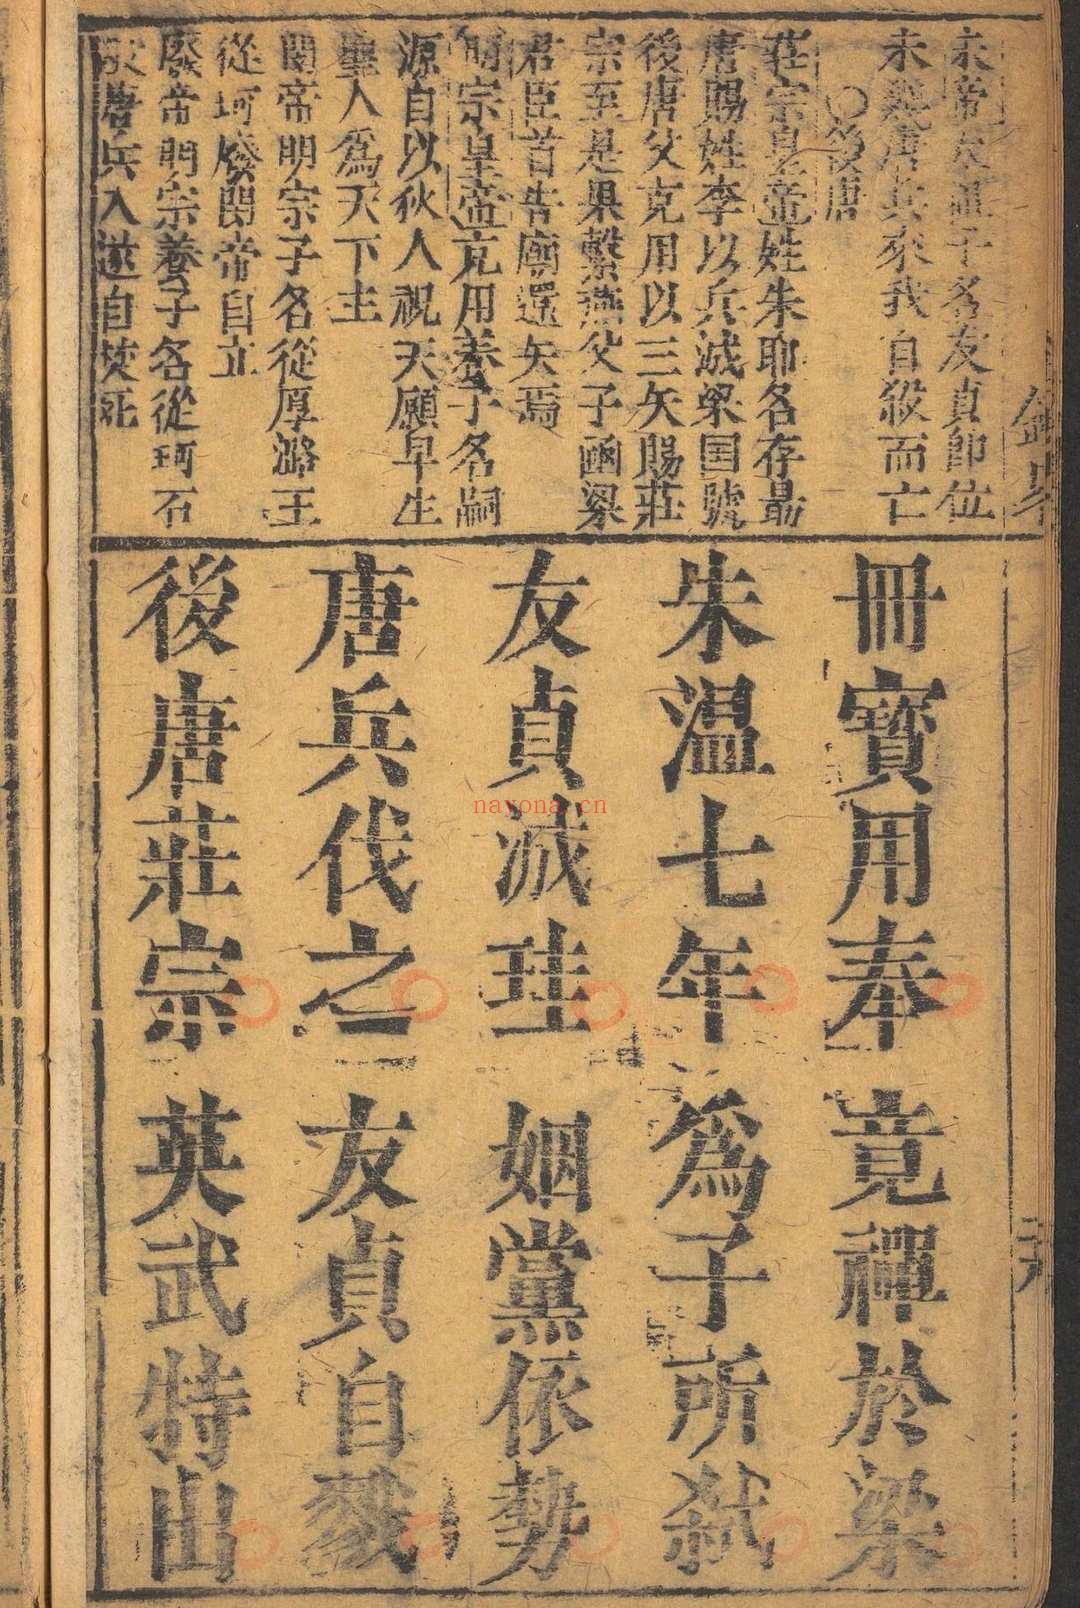 末帝友貞子名友貞即位
未幾唐兵來我自殺而亡
○後唐
莊宗皇帝姓朱耶名存勗
唐賜姓李以兵滅梁国號
後唐父克用以三矢賜莊
宗至是果繫燕父子凾梁
君臣首告廟還矢焉
明宗皇帝克用養子名嗣
源自以狄人祝天願早生
聖人為天下主
閔帝明宗子名從厚潞王
從珂廢閔帝自立
廢帝明宗養子名從珂石
敬唐兵入遂自焚死
冊寶用奉 竟禪於梁
朱溫七年 為子所弒
友貞滅珪 姻黨依勢
唐兵伐之 友貞自戮
後唐莊宗 英武特出
nayona.cn